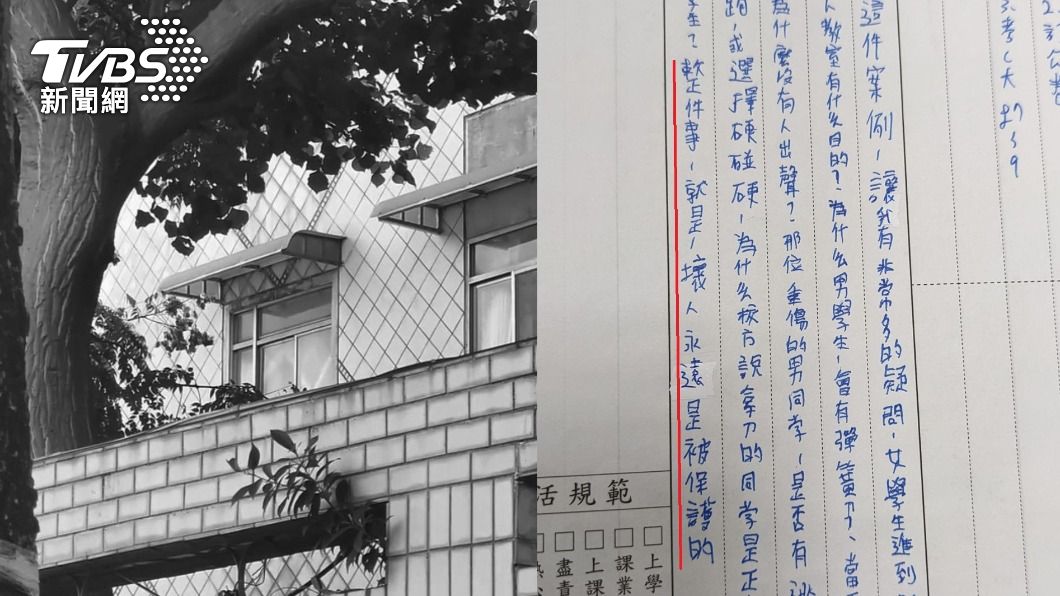 TVBS
新聞網
這件案例,讓我有非常多的疑問,女學生進到
人教室有什么目的?為什么男學生,會有彈簧刀?當
為什麼沒有人出聲?那位重傷的男同學,是否有
跑,或選擇硬碰硬,為什么校方說拿刀的同學是正
生?整件事,就是,壞人永遠是被保護的
活規範
上學
課業
上課
盡責